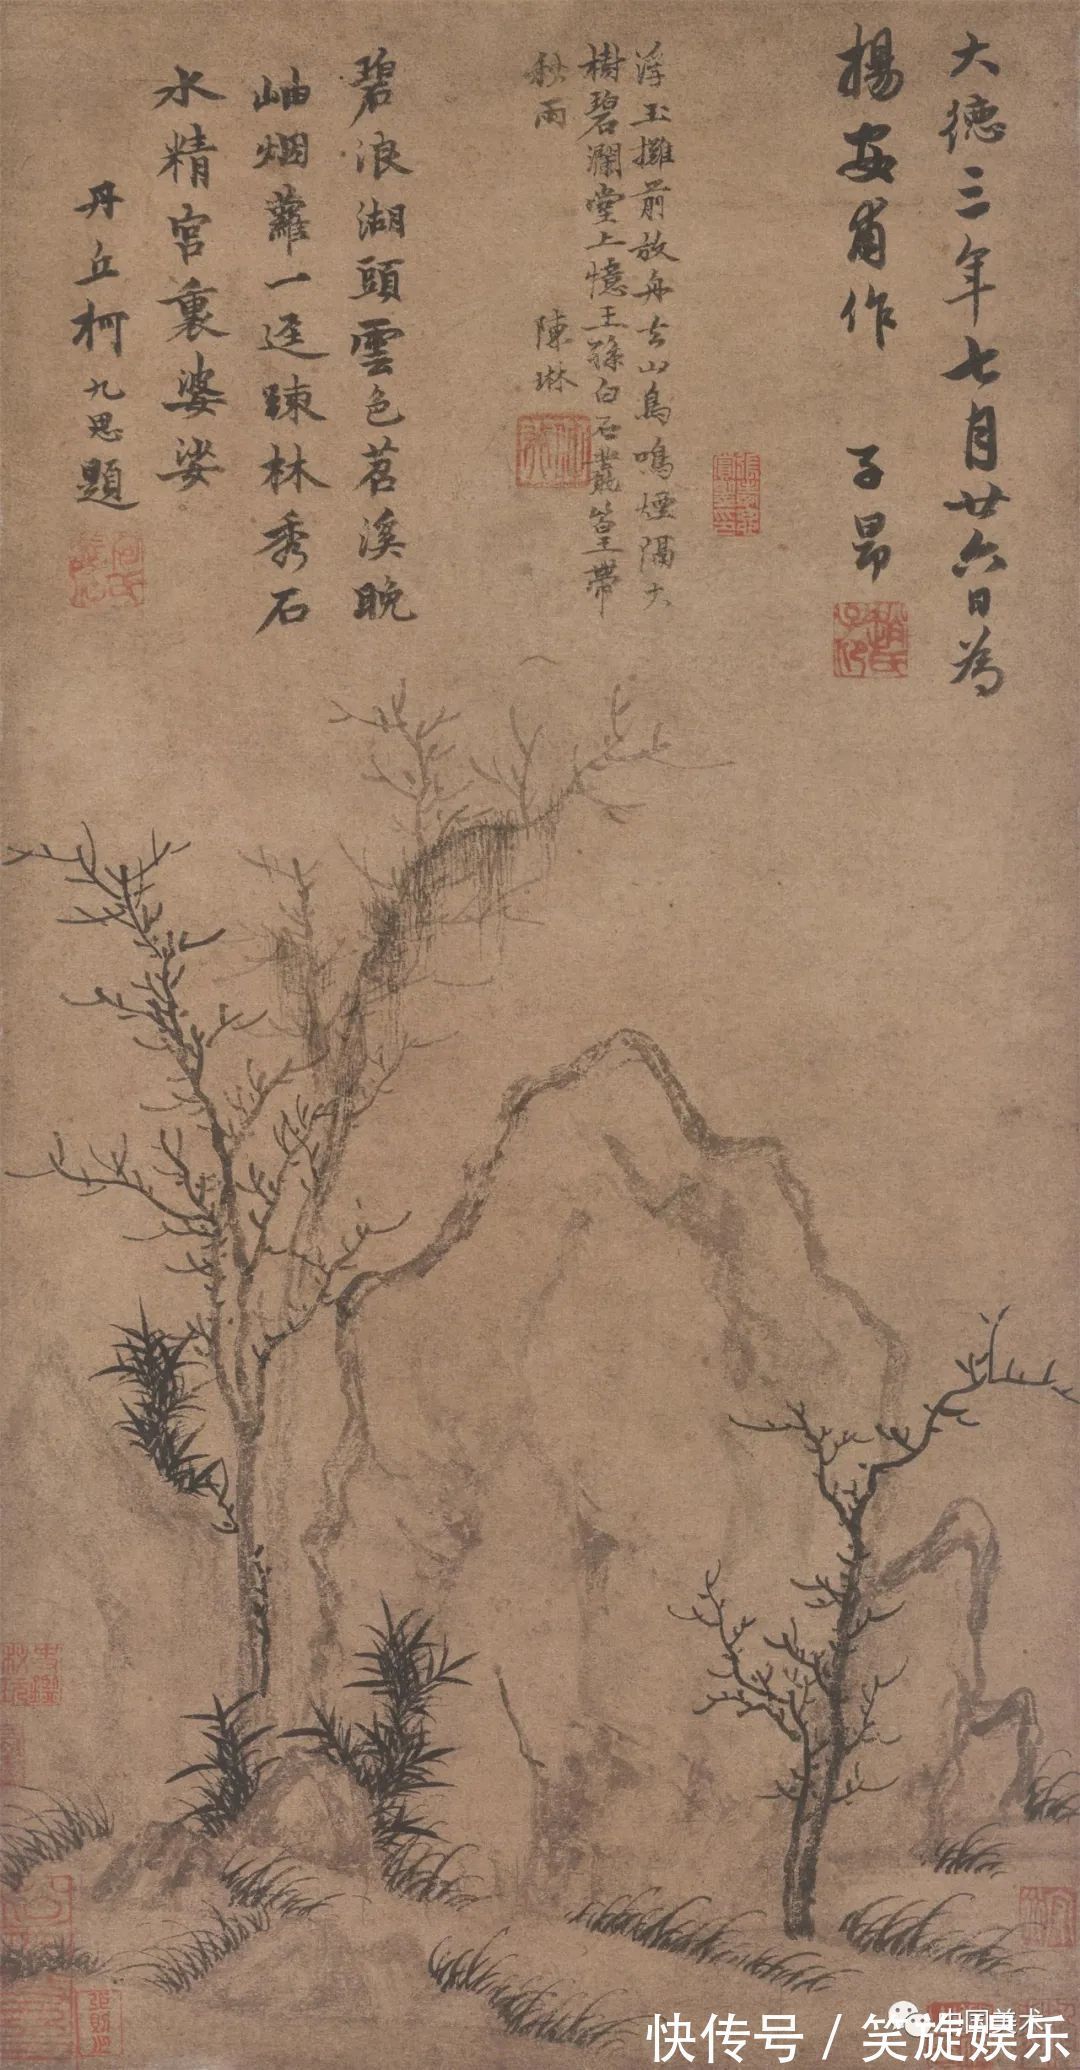 大德三年七月廿六日為
楊安甫作 子昂
趙氏子昂
浮玉攤前放舟去山鳥鳴煙隔大
樹碧瀾堂上憶王孫白石叢篁帶
秋雨 陳琳
碧浪湖頭雲色茗溪晚
岫烟蘿一逕踈林秀石
水精宮裏婆娑
丹丘柯九思題
中国美术
快传号 / 笑旋娱乐